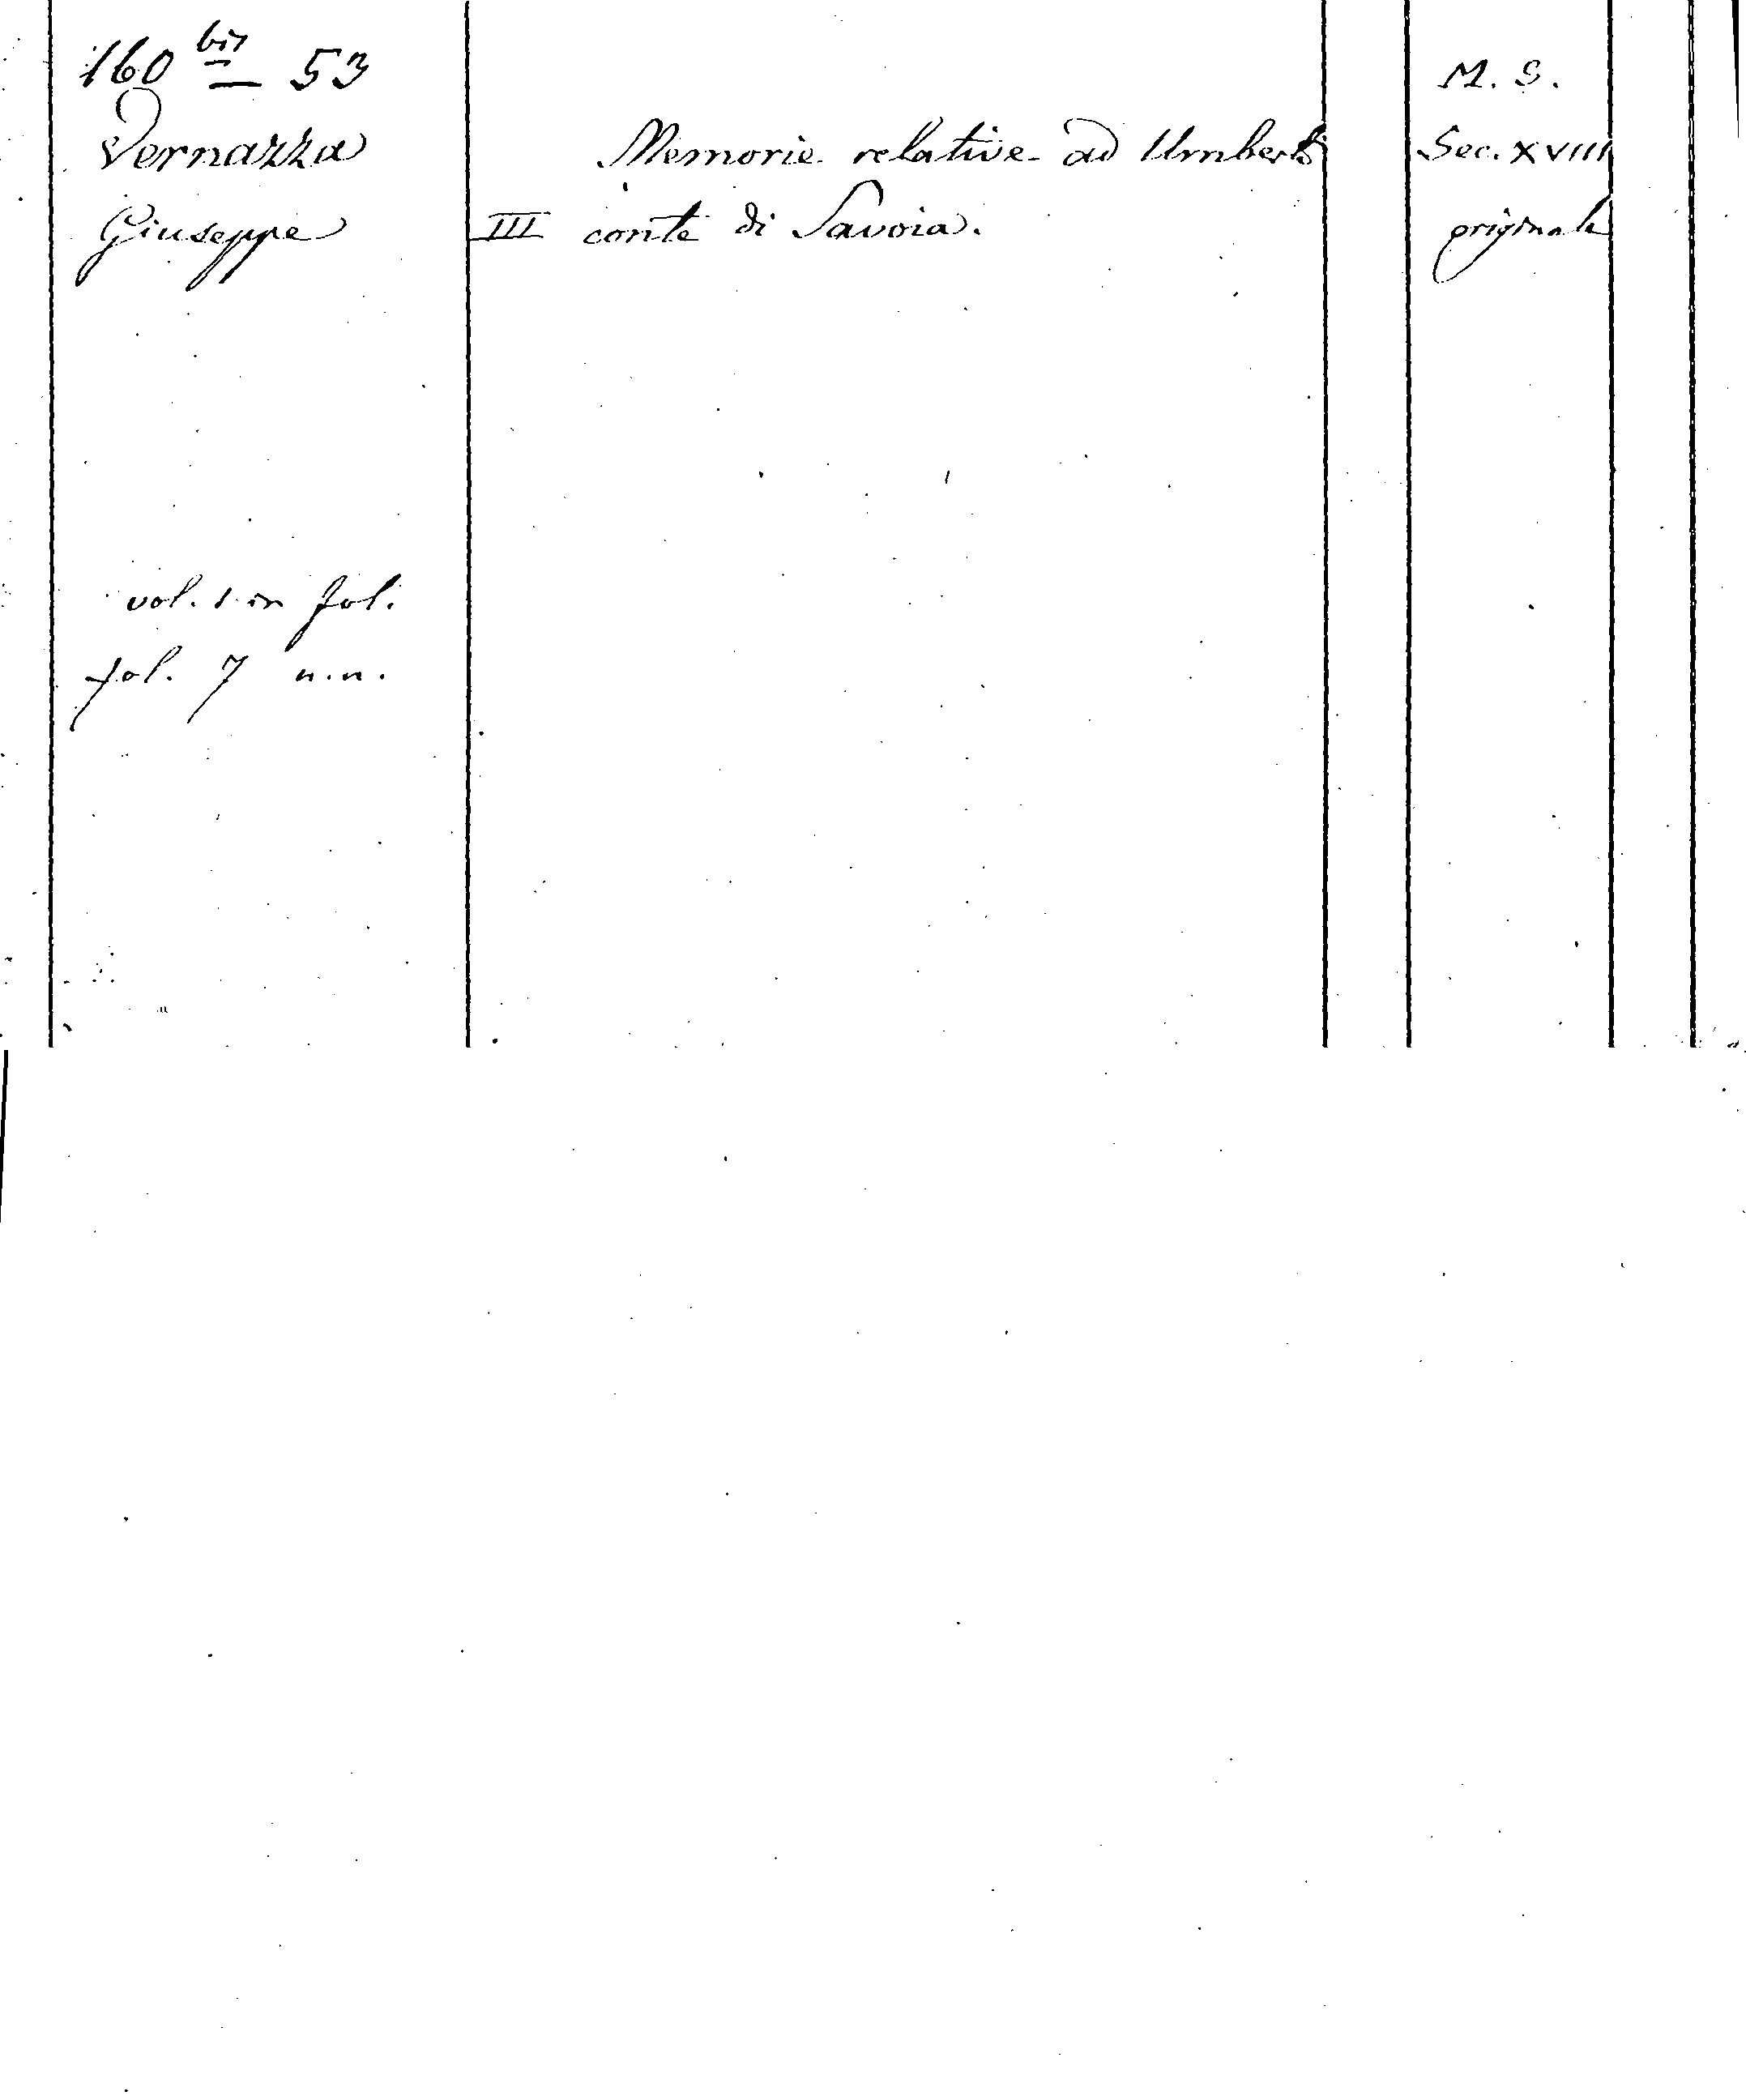 160 bis — 53
Vernazza
Giuseppe
Memorie relative ad Umberto
III conte di Savoia.
M. S.
Sec. XVIII
originale
vol. 1 in fol.
fol. 7 n.n.